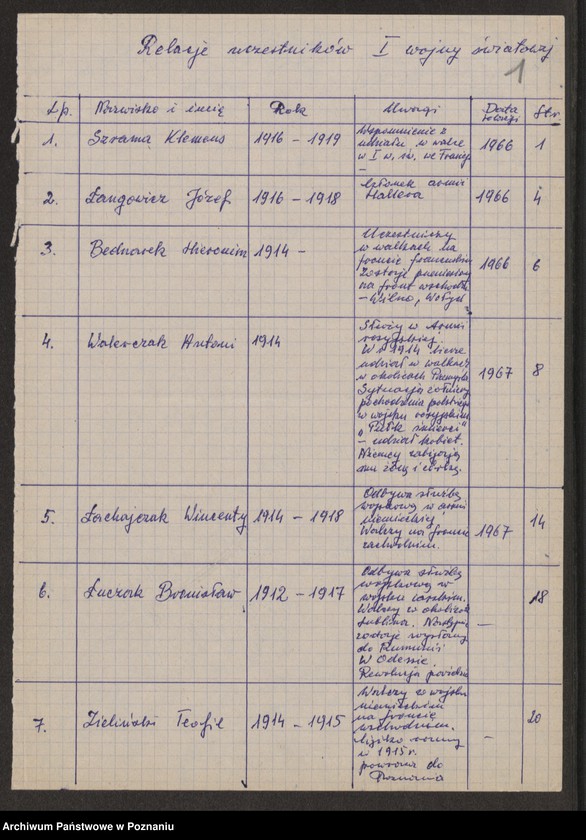 Relacje uczestników I wojny światowej
1
Lp. Nazwisko i imię Rok Uwagi Data relacji Str.
1. Szrama Klemens 1916 – 1919 Wspomnienie z
udziału w walce
w I w. św. we Francji 1966 1
2. Langowicz Józef 1916 – 1918 Członek armii
Hallera 1966 4
3. Bednarek Hieronim 1914 – Uczestniczy
w walkach na
froncie francuskim
Zostaje przeniesiony
na front wschodni
– Wilno, Wołyń 1966 6
4. Walerczak Antoni 1914 Służy w Armii
rosyjskiej.
W r. 1914 bierze
udział w walkach
w okolicach Przemyśla
Sytuacja żołnierzy
pochodzenia polskiego
w wojsku rosyjskim
„Pułk śmierci"
– udział kobiet.
Niemcy zabijają
mu żonę i córkę. 1967 8
5. Lachajczak Wincenty 1914 – 1918 Odbywa służbę
wojskową w armii
niemieckiej
Walczy na froncie
zachodnim. 1967 14
6. Łuczak Bronisław 1912 – 1917 Odbywa służbę
wojskową w
wojsku carskim.
Walczy w okolicach
Lublina. Następnie
zostaje wysłany
do Rumunii
W Odessie
Rewolucja – 18
7. Zieliński Teofil 1914 – 1915 Walczy w wojsku
niemieckim
na froncie
wschodnim.
Ciężko ranny
w 1915 r.
powraca do
Poznania – 20
Archiwum Państwowe w Poznaniu